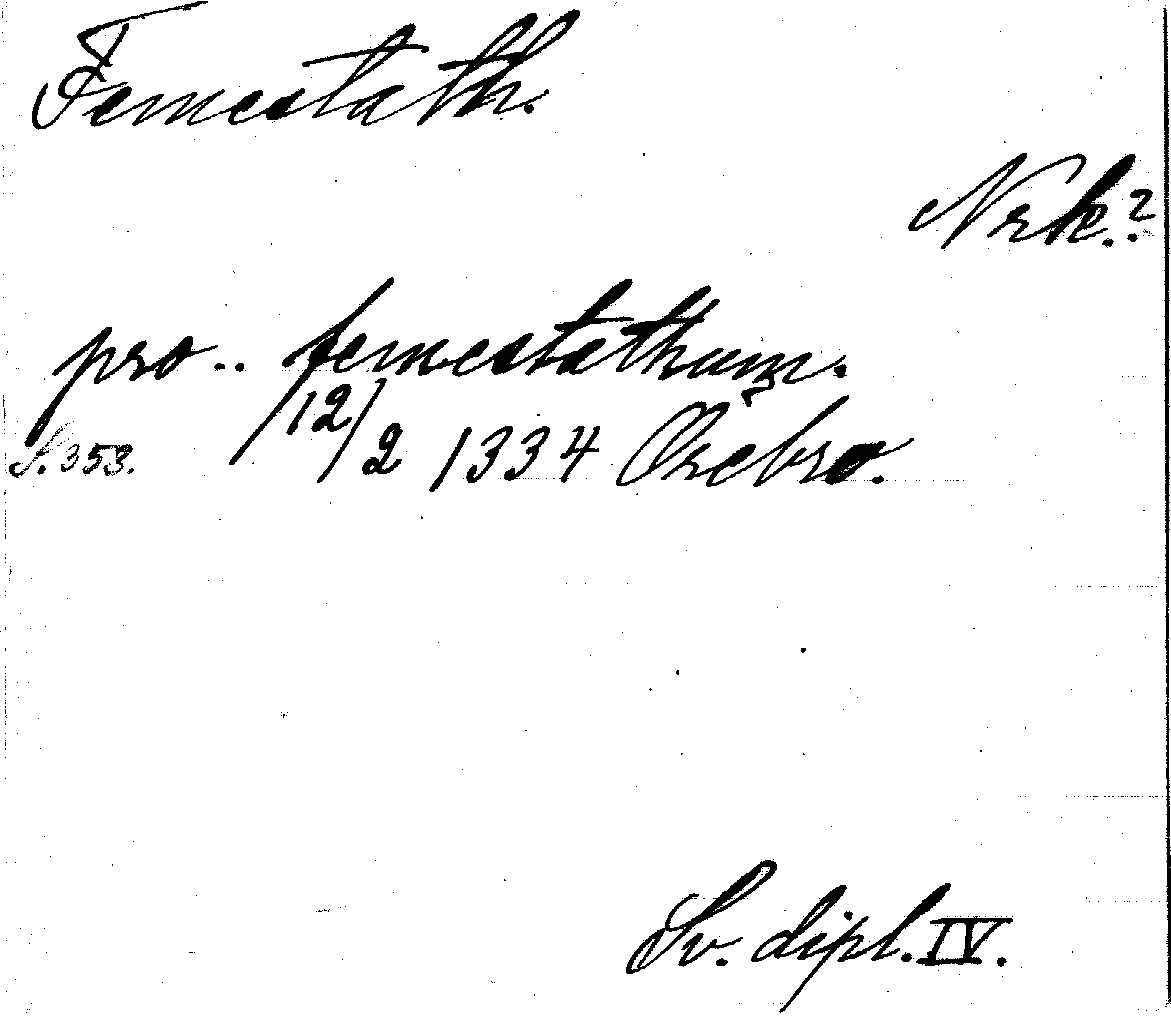 Femestath.
Nrk.?
pro.. femestathum.
S. 353. 12/2 1334 Örebro.
Sv. dipl. IV.